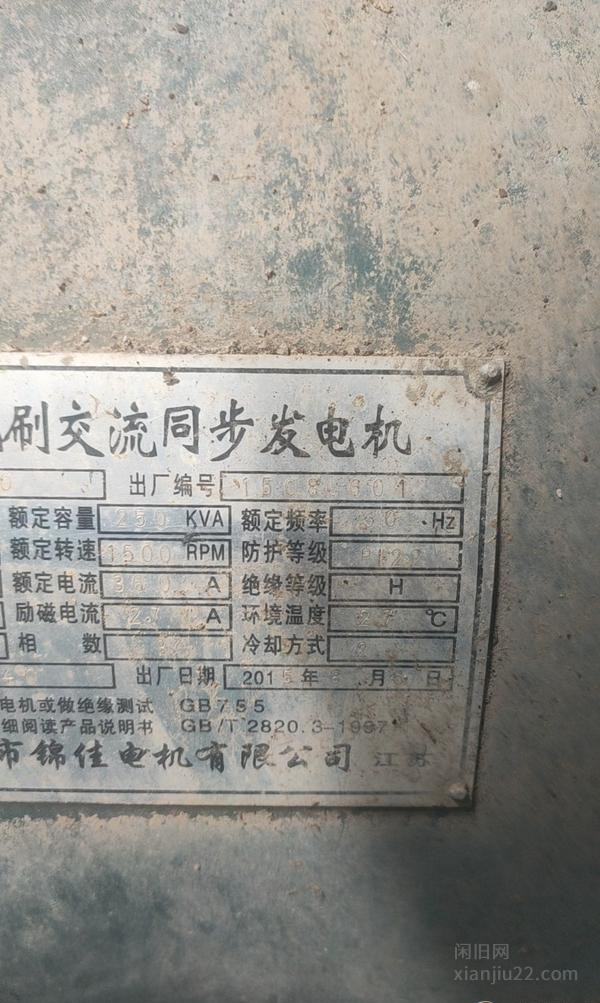 刷交流同步发电机
0 出厂编号
额定容量 250 KVA 额定频率 Hz
额定转速 1500 RPM 防护等级
额定电流 A 绝缘等级 H
励磁电流 A 环境温度 ℃
相数 冷却方式
出厂日期 2015年 月 日
电机或做绝缘测试 GB755
细阅读产品说明书 GB/T2820.3-1997
市锦佳电机有限公司 江苏
闲旧网
xianjiu22.com